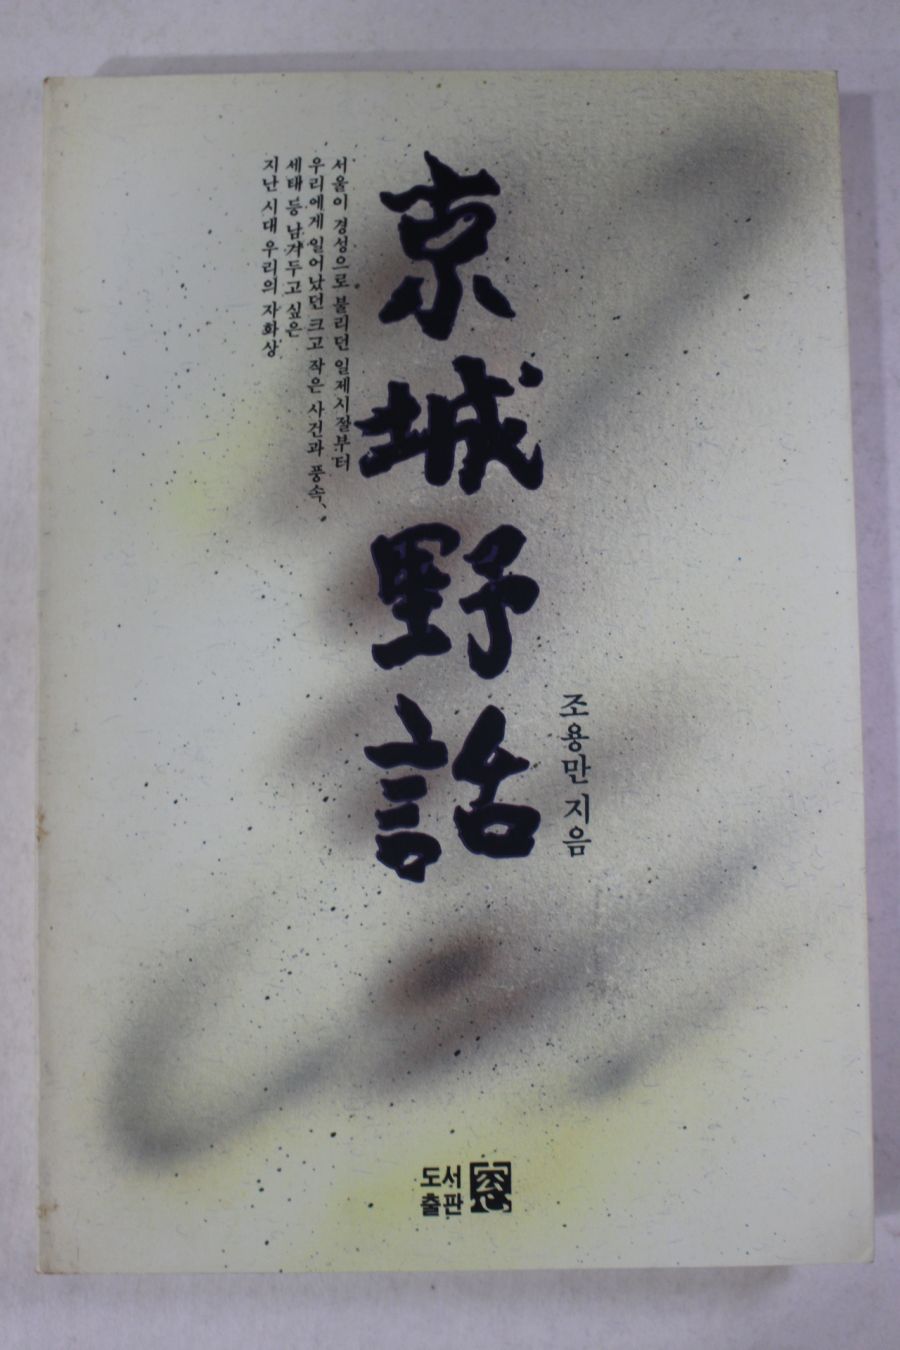 京城野話
서울이 경성으로 불리던 일제시절부터
우리에게 일어났던 크고 작은 사건과 풍속,
세태 등 남겨두고 싶은
지난 시대 우리의 자화상
조용만 지음
도서
출판
窓